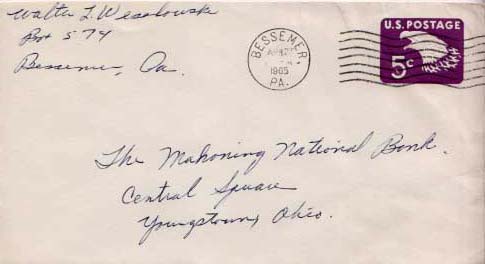 Walter L. Wesolowski
Box 574
Bessemer, Pa.
BESSEMER
1965
PA.
U.S. POSTAGE
5c
The Mahoning National Bank.
Central Square
Youngstown, Ohio.